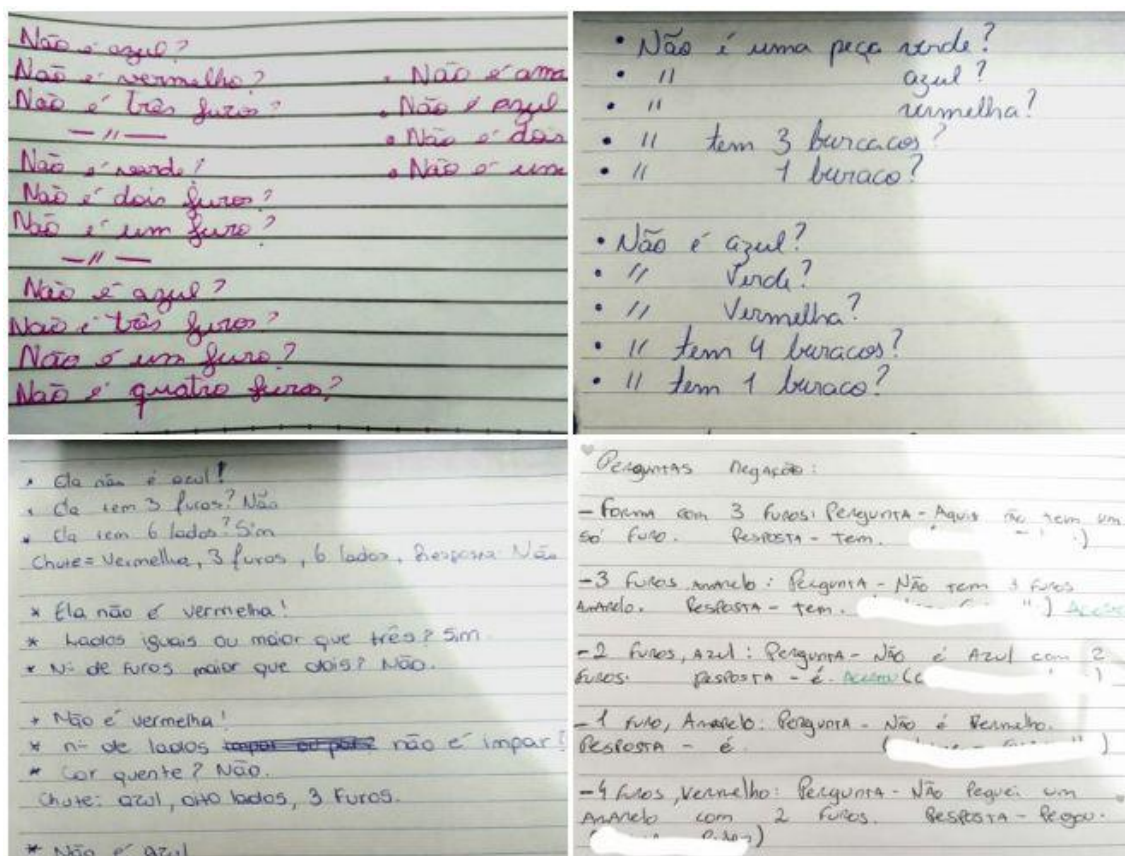 Não é azul?
Não é vermelho?
Não é três furos?
— 11 —
Não é verde?
Não é dois furos?
Não é um furo?
— 11 —
Não é azul?
Não é três furos?
Não é um furo?
Não é quatro furos?
• Não é ama
• Não é azul
• Não é dois
• Não é um
• Não é uma peça verde?
• 11 azul?
• 11 vermelha?
• 11 tem 3 burcacos?
• 11 1 buraco?
• Não é azul?
• 11 Verde?
• 11 Vermelha?
• 11 tem 4 buracos?
• 11 tem 1 buraco?
* Ela não é azul!
* Ela tem 3 furos? Não
* Ela tem 6 lados? Sim
Chute = Vermelha, 3 furos, 6 lados, Resposta Não
* Ela não é vermelha!
* Lados iguais ou maior que três? Sim.
* Nº de furos maior que dois? Não.
* Não é vermelha!
* nº de lados não é impar?
* Cor quente? Não.
Chute: azul, oito lados, 3 Furos.
* Não é azul
Perguntas negação:
- Forma com 3 Furos: Pergunta - Aqui não tem um
só Furo. Resposta - Tem. )
- 3 Furos Amarelo: Pergunta - Não tem 3 Furos
Amarelo. Resposta - Tem. )
- 2 Furos, Azul: Pergunta - Não é Azul com 2
Furos. Resposta - é. )
- 1 Furo, Amarelo: Pergunta - Não é Vermelho.
Resposta - é. ( )
- 4 Furos, Vermelho: Pergunta - Não Peguei um
Amarelo com 2 Furos. Resposta - Pegou.